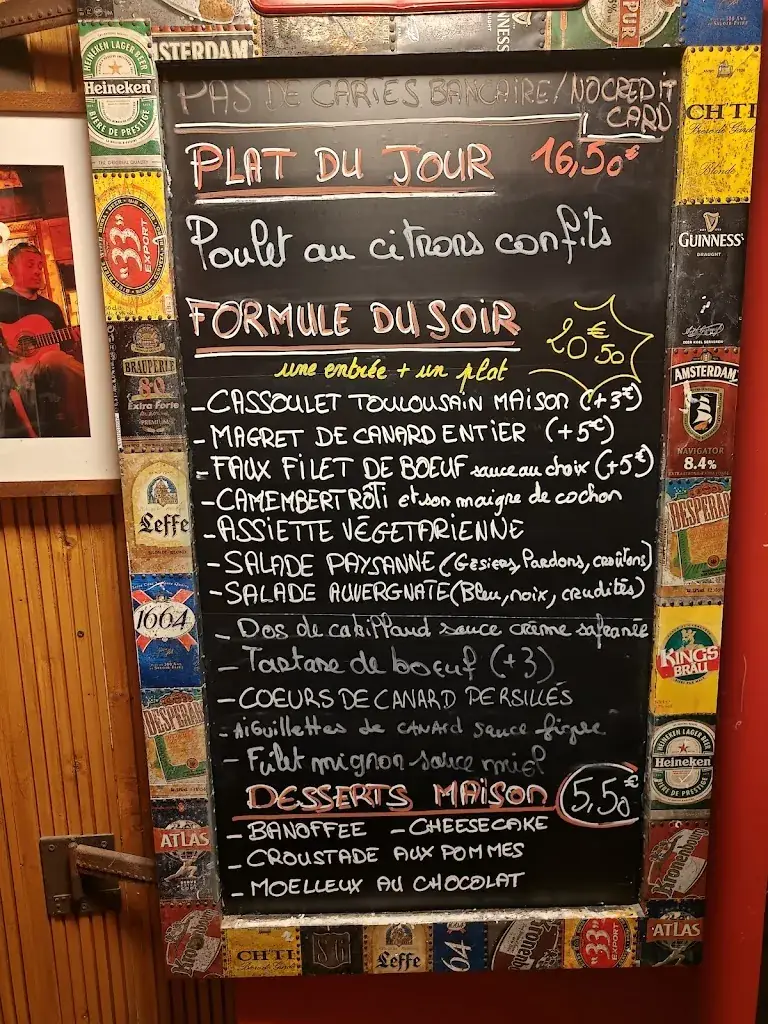 PAS DE CARTES BANCAIRE / NO CREDIT
CARD
PLAT DU JOUR 16,50€
Poulet au citrons confits
FORMULE DU SOIR 20€50
une entrée + un plat
- CASSOULET TOULOUSAIN MAISON (+3€)
- MAGRET DE CANARD ENTIER (+5€)
- FAUX FILET DE BOEUF sauce au choix (+5€)
- CAMEMBERT RÔTI et son maigre de cochon
- ASSIETTE VÉGETARIENNE
- SALADE PAYSANNE (Gesiers, lardons, croûtons)
- SALADE AUVERGNATE (Bleu, noix, crudités)
- Dos de cabillaud sauce crème safranée
- Tartare de boeuf (+3)
- COEURS DE CANARD PERSILLÉS
- AIGUILLETTES de CANARD sauce
- Filet mignon sauce miel
DESSERTS MAISON 5,50€
- BANOFFEE - CHEESECAKE
- CROUSTADE AUX POMMES
- MOELLEUX AU CHOCOLAT
AMSTERDAM
GUINNESS
HEINEKEN LAGER BEER
Heineken
BIÈRE DE PRESTIGE
"33"
EXPORT
BRAUPERLE
8.0
Extra Forte
PREMIUM
Leffe
1664
DESPERADOS
ATLAS
Kronenbourg
CH'TI
Blonde
GUINNESS
DRAUGHT
AMSTERDAM
NAVIGATOR
8.4%
DESPERADOS
KINGS
BRÄU
HEINEKEN LAGER BEER
Heineken
BIÈRE DE PRESTIGE
Kronenbourg
ATLAS
CH'TI
Leffe
64
Kronenbourg
"33"
EXPORT